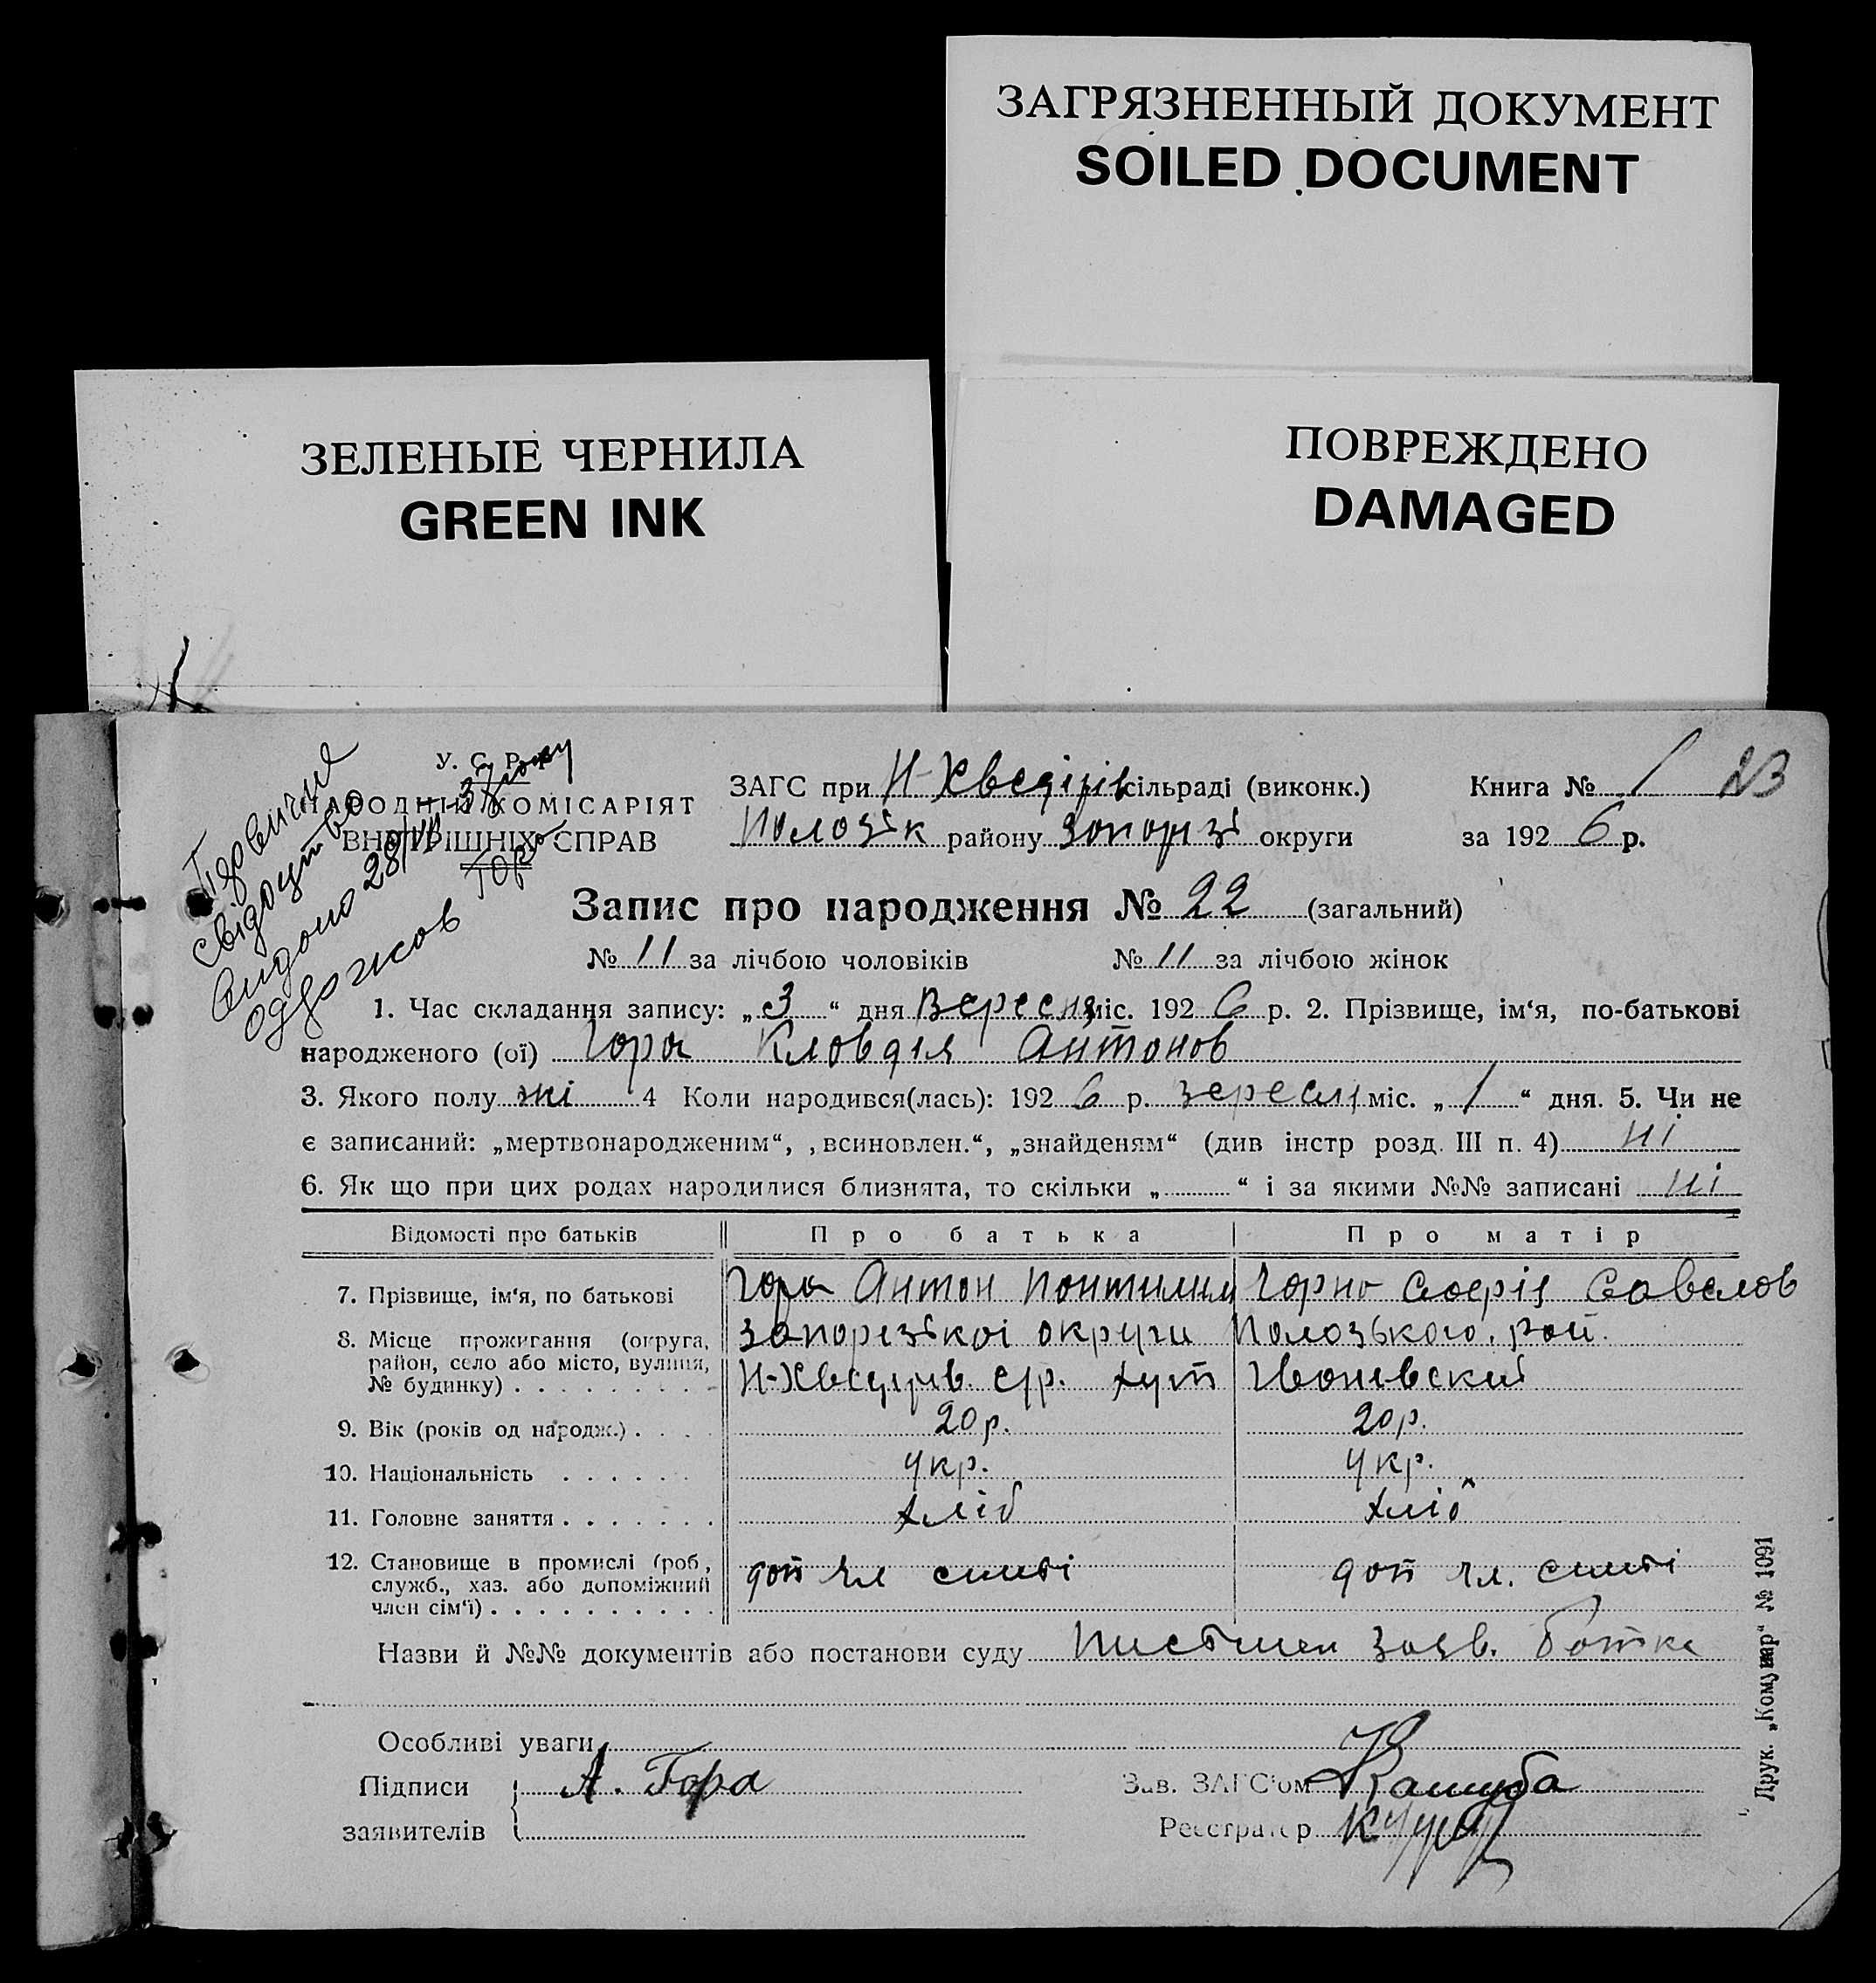 ЗАГРЯЗНЕННЫЙ ДОКУМЕНТ
SOILED DOCUMENT
ЗЕЛЕНЫЕ ЧЕРНИЛА
GREEN INK
ПОВРЕЖДЕНО
DAMAGED
У. С. Р. Р.
НАРОДНІЙ КОМІСАРІЯТ
ВНУТРІШНІХ СПРАВ
свідоцтво
видано 28/VII 37 року
одержав Гора
ЗАГС при Н-Хведірів сільраді (виконк.) Книга № 1 23
Полозьк району Запорізь округи за 192 6 р.
Запис про народження № 22 (загальний)
№ 11 за лічбою чоловіків № 11 за лічбою жінок
1. Час складання запису: „ 3 “ дня Вересня міс. 192 6 р. 2. Прізвище, ім‘я, по-батькові
народженого (ої) Гора Кловдія Антонов
3. Якого полу жі 4 Коли народився(лась): 192 6 р. вересня міс. „ 1 “ дня. 5. Чи не
є записаний: „мертвонародженим“, „всиновлен.“, „знайденям“ (див інстр розд. III п. 4) ні
6. Як що при цих родах народилися близнята, то скільки „ “ і за якими №№ записані ні
Відомості про батьків Про батька Про матір
7. Прізвище, ім‘я, по батькові Гора Антон Гора Савелов
8. Місце прожигання (округа, Запорізької округи Полозького рай.
район, село або місто, вулиця, Н-Хведірів с/р. хут
№ будинку)
9. Вік (років од народж.) 20 р. 20 р.
10. Національність Укр. Укр.
11. Головне заняття хліб хліб
12. Становище в промислі (роб, доп чл симьї доп чл. симьї
служб., хаз. або допоміжний
член сім‘ї)
Назви й №№ документів або постанови суду Письмен заяв. батька
Особливі уваги
Підписи А. Гора Зав. ЗАГС‘ом Кашуба
заявителів Реєстратор
Друк. „Комунар“ № 1091